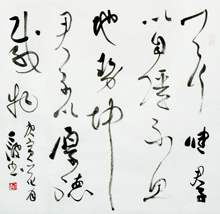 天行健君子
以自强不息
地势坤
君子以厚德
载物